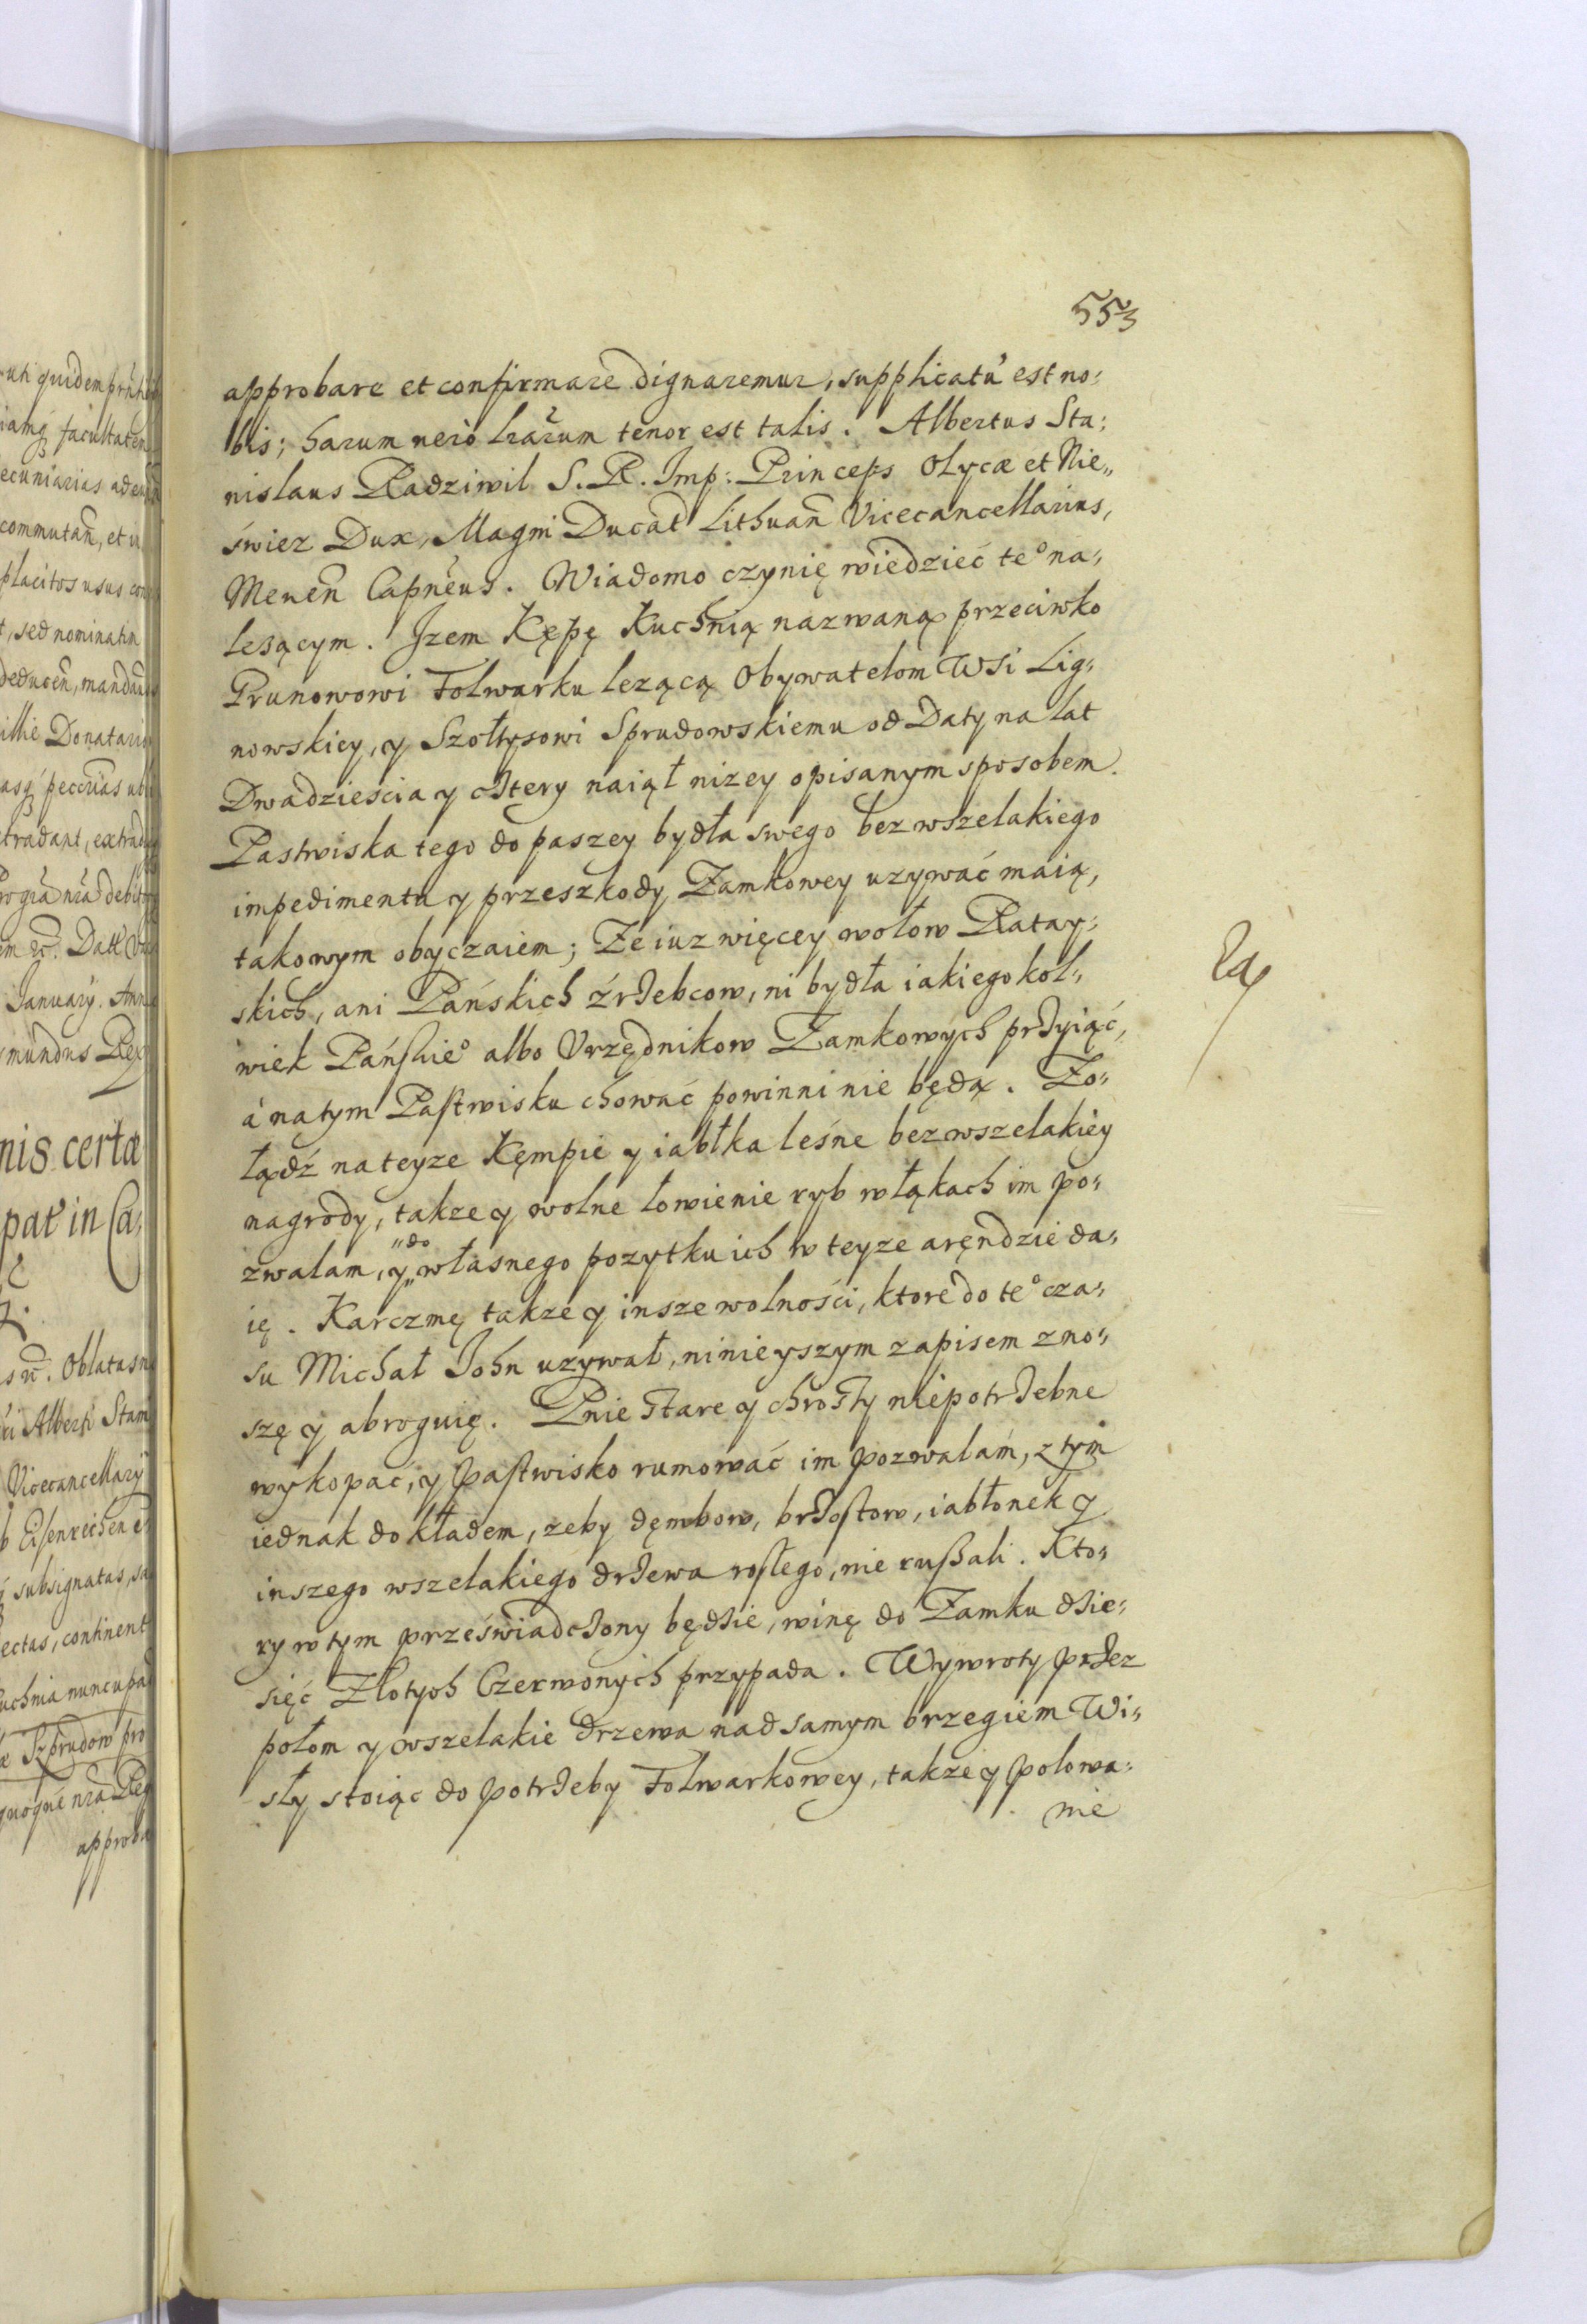 553
approbare et confirmare dignaremur, supplicatũ est no:
bis; harum vero lrarum tenor est talis. Albertus Sta:
nislaus Radziwil S. R. Imp: Princeps Olycæ et Nie„
świez Dux, Magni Ducat Lithuan Vicecancellarius,
Meven Capneus. Wiadomo czynię wiedzieć te° na:
lesącym. Izem Kępę Kuchnią nazwaną przeciwko
Prunowowi Folwarku lezącą Obywatelom Wsi Lig:
nowskiey, y Szołtysowi Sprudowskiemu od Daty na lat
Dwadziescia y cztery naiął nizey opisanym sposobem.
Pastwiska tego do paszey bydła swego bez wszelakiego
impedimentu y przeszkody Zamkowey uzywać maią,
takowym obyczaiem; Ze iuz więcey wołow Ratay:
skich, ani Pańskich źrzebcow, ni bydła iakiegokol:
wiek Pańskie° albo Vrzędnikow Zamkowych przyiąć,
à na tym Pastwisku chować powinni nie będą. Zo:
łądź na teyze Kęmpie y iabłka leśne bez wszelakiey
nagrody, takze y wolne łowienie ryb w łąkach im po:
zwalam, y „do„ własnego pozytku ich w teyze aręndzie da:
ię. Karczmę takze y insze wolności, ktore do te° cza:
su Michał John uzywał, ninieyszym zapisem zno:
szę y abroguię. Pnie stare y chrosty niepotrzebne
wykopać, y pastwisko rumować im pozwalam, z tym
iednak dokładem, zeby dęmbow, brzostow, iabłonek y
inszego wszelakiego drzewa rosłego, nie rußali. Kto:
ry w tym przeświadczony będzie, winę do Zamku dzie:
sięć Złotych Czerwonych przypada. Wywroty przez
połom y wszelakie drzewa nad samym brzegiem Wi:
sły stoiąc do potrzeby Folwarkowey, takze y polowa:
nie
nis certæ
pat in Ca:
Donatario
January. Ann
mundus Rex
Oblatas
Alberti Stani
Vicecancellarÿ
subsignatas,
continent
nuncupa
Szprudow pro
approba